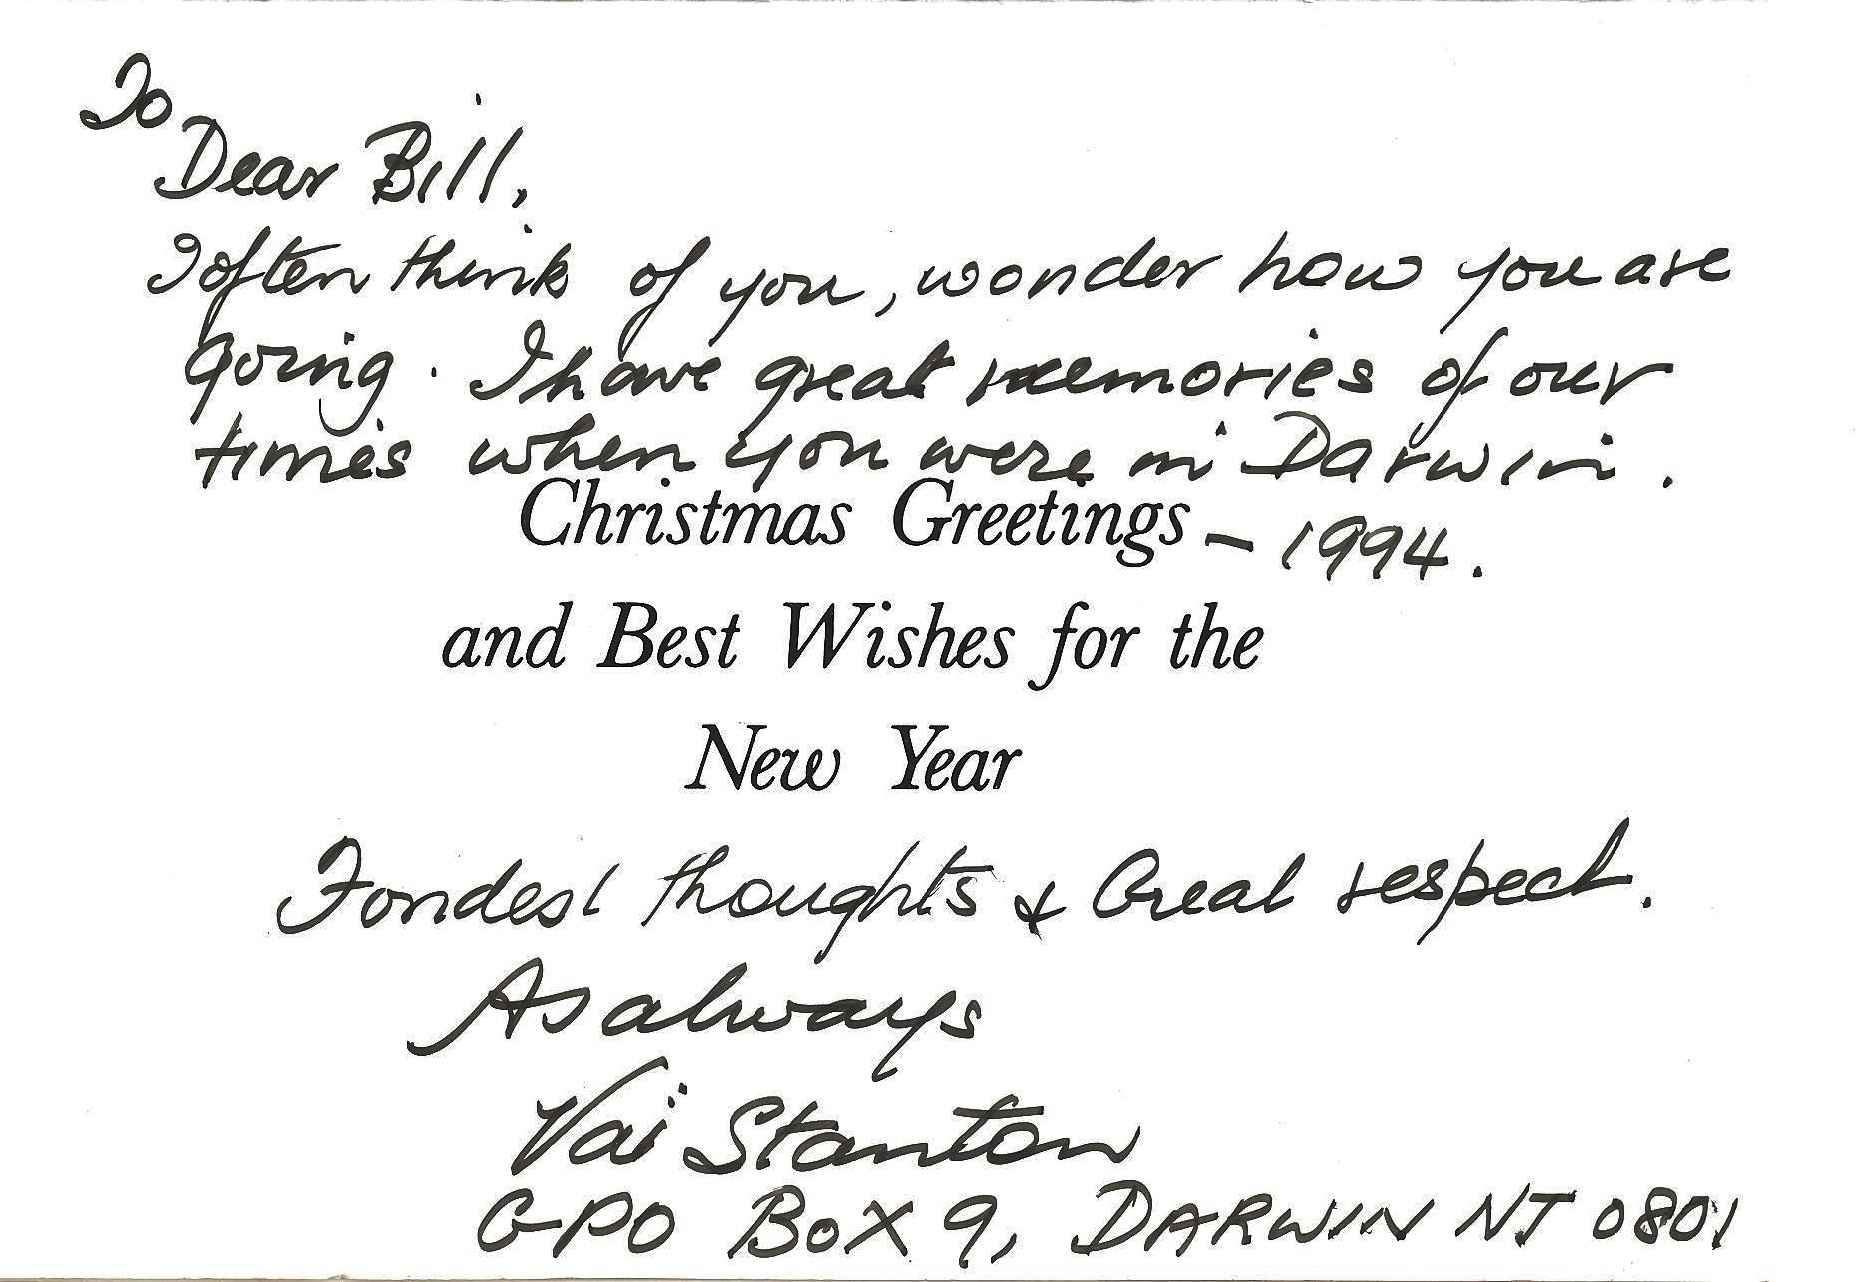 To
Dear Bill,
I often think of you, wonder how you are
going. I have great memories of our
times when you were in Darwin.
Christmas Greetings – 1994.
and Best Wishes for the
New Year
Fondest thoughts & Great respect.
As always
Vai Stanton
GPO BOX 9, DARWIN NT 0801